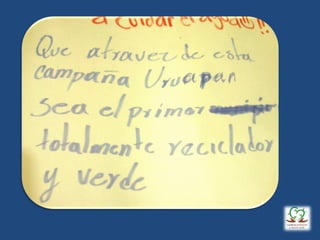 a cuidar el agua!!
Que atravez de esta
campaña Uruapan
sea el primer
totalmente reciclador
y verde